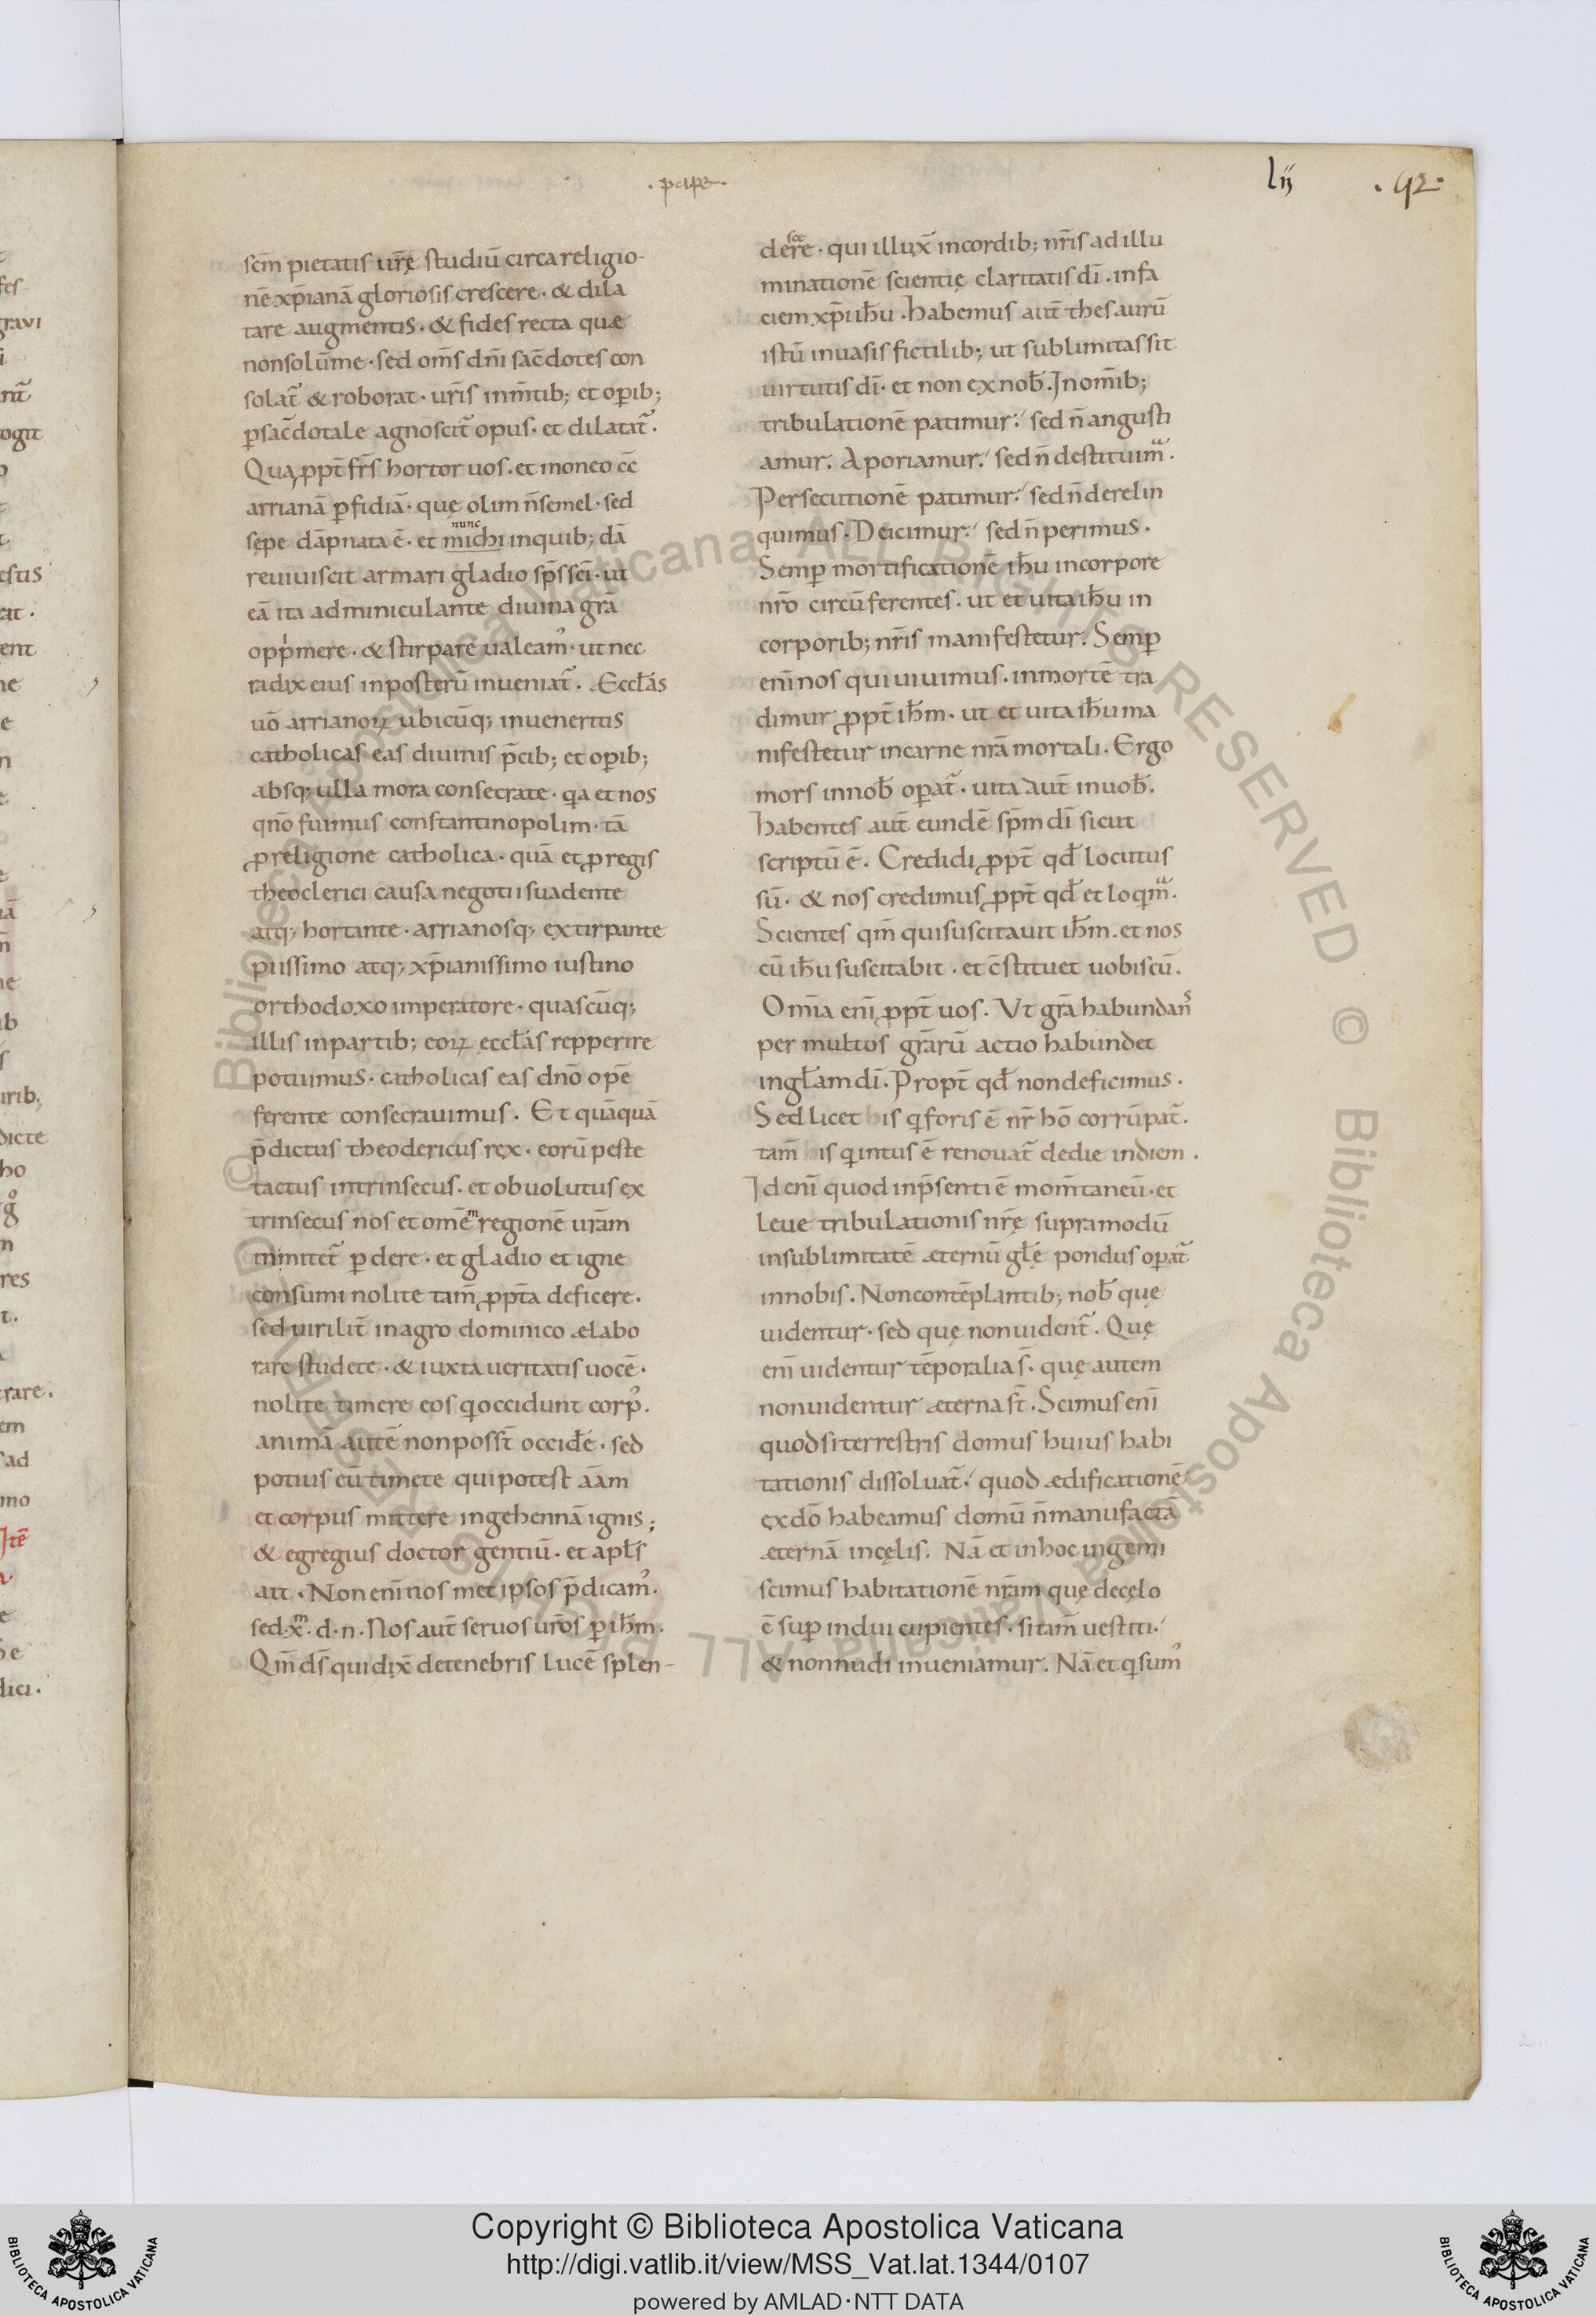 .pape.
lij
.92.
scm̄ pietatis ur̄ę studiū circa religio-
nē xp̄ianā gloriosis crescere · & dila
tare augmentis · & fides recta quæ
non solū me · sed om̄s dn̄i sac̄dotes con
solat̄ & roborat · ur̄is inm̄tib; et oꝑib;
ꝑ sac̄dotale agnoscit̄ opus · et dilatat̄ .
Qua ꝓpt̄ fr̄s hortor uos · et moneo cc̄
arrianā ꝑfidiā · quę olim n̄ semel · sed
sepe dāpnata ē · et michi inquib; dā
nunc
reuiuiscit armari gladio sp̄s sc̄i · ut
eā ita adminiculante diuina gr̄a
opp'mere · & stirpare ualeam' · ut nec
radix eius in posterū inueniat̄ . Æccl̄as
uō arrianoꝝ ubicūq; inueneritis
catholicas eas diuinis p̄cib; et oꝑib;
absq; ulla mora consecrate · qa et nos
qn̄o fuimus constantinopolim · tā
ꝓ religione catholica · quā et ꝓ regis
theoclerici causa negotii suadente
atq; hortante · arrianosq; extirpante
piissimo atq; xp̄ianissimo iustino
orthodoxo imperatore · quascūq;
illis in partib; eoꝝ ęccl̄as repperire
potuimus · catholicas eas dn̄o opē
ferente consecrauimus . Et quāquā
p̄dictus theodericus rex · eorū peste
tactus intrinsecus · et obuolutus ex
trinsecus nos et omēm regionē ur̄am
minitet̄ ꝑdere · et gladio et igne
consumi nolite tam̄ ꝓpt̄a deficere .
sed uirilit̄ in agro dominico ælabo
rare studete · & iuxta ueritatis uocē ·
nolite timere eos q̇ occidunt corp' .
animā autē non poss̄t occid̄e · sed
potius eū timete qui potest āam
et corpus mittere in gehennā ignis ;
& egregius doctor gentiū · et apl̄s
ait · Non enī nosmet ipsos p̄dicam' .
sed · xm̄ · d · n . Nos aut̄ seruos ur̄os ꝑ ih̄m .
Qm̄ ds̄ qui dix̄ de tenebris lucē splen-
dere · qui illux̄ in cordib; nr̄is ad illu
sce
minationē scientię claritatis dī · in fa
ciem xp̄i ih̄u · Habemus aut̄ thesaurū
istū in uasis fictilib; ut sublimitas sit
uirtutis dī · et non ex nob̄ . In om̄ib;
tribulationē patimur: sed n̄ angusti
amur . Aporiamur: sed n̄ destituim̄ .
Persecutionē patimur: sed n̄ derelin
quimus · Deicimur: sed n̄ perimus .
Semꝑ mortificationē ih̄u in corpore
nr̄o circūferentes · ut et uita ih̄u in
corporib; nr̄is manifestetur . Semꝑ
enī nos qui uiuimus · in mortē tra
dimur ꝓpt̄ ih̄m · ut et uita ih̄u ma
nifestetur in carne nr̄a mortali . Ergo
mors in nob̄ oꝑat̄ · uita aut̄ in uob̄ .
Habentes aut̄ eundē sp̄m dī sicut
scriptū ē . Credidi ꝓpt̄ qd̄ locutus
sū · & nos credimus ꝓpt̄ qd̄ et loqm̄ .
Scientes qm̄ qui suscitauit ih̄m · et nos
cū ih̄u suscitabit · et c̄stituet uobiscū .
Om̄ia enī ꝓpt̄ uos . Ut gr̄a habundans̄
per multos gr̄arū actio habundet
in gl̄am dī . Propt̄ qd̄ non deficimus .
Sed licet is q̇ foris ē nr̄ hō corrūpat̄ .
tam̄ is q̇ intus ē renouat̄ de die in diem .
Id enī quod in p̄senti ē mom̄taneū · et
leue tribulationis nr̄ę supra modū
in sublimitatē æternū gl̄ę pondus oꝑat̄
in nobis . Non contēplantib; nob̄ quę
uidentur · sed quę non uident̄ . Quę
enī uidentur tēporalia s̄ · quę autem
non uidentur æterna st̄ . Scimus enī
quod si terrestris domus huius habi
tationis dissoluat̄: quod ædificationē
ex dō habeamus domū n̄ manufactā
æternā in cęlis . Nā et in hoc ingemi
scimus habitationē nr̄am quę de cęlo
ē suꝑ indui cupientes · si tam̄ uestiti:
& non nudi inueniamur . Nā et q̇ sum'
© Biblioteca Apostolica Vaticana ALL RIGHTS RESERVED © Biblioteca Apostolica Vaticana ALL RIGHTS RESERVED
Copyright © Biblioteca Apostolica Vaticana
http://digi.vatlib.it/view/MSS_Vat.lat.1344/0107
powered by AMLAD·NTT DATA
BIBLIOTECA APOSTOLICA VATICANA
BIBLIOTECA APOSTOLICA VATICANA